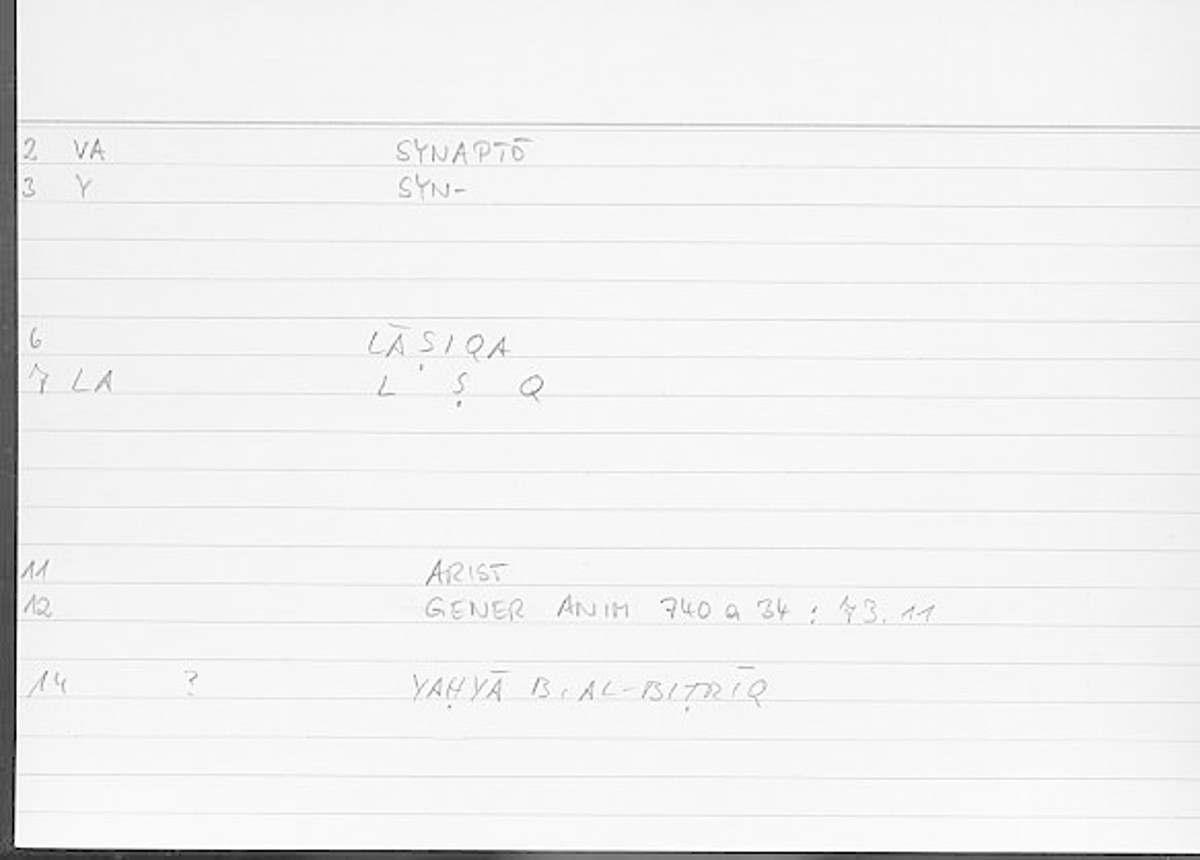 2 VA SYNAPTŌ
3 Y SYN-
6 LĀṢIQA
7 LA L Ṣ Q
11 ARIST
12 GENER ANIM 740 a 34 : 73. 11
14 ? YAḤYĀ B. AL-BIṬRĪQ